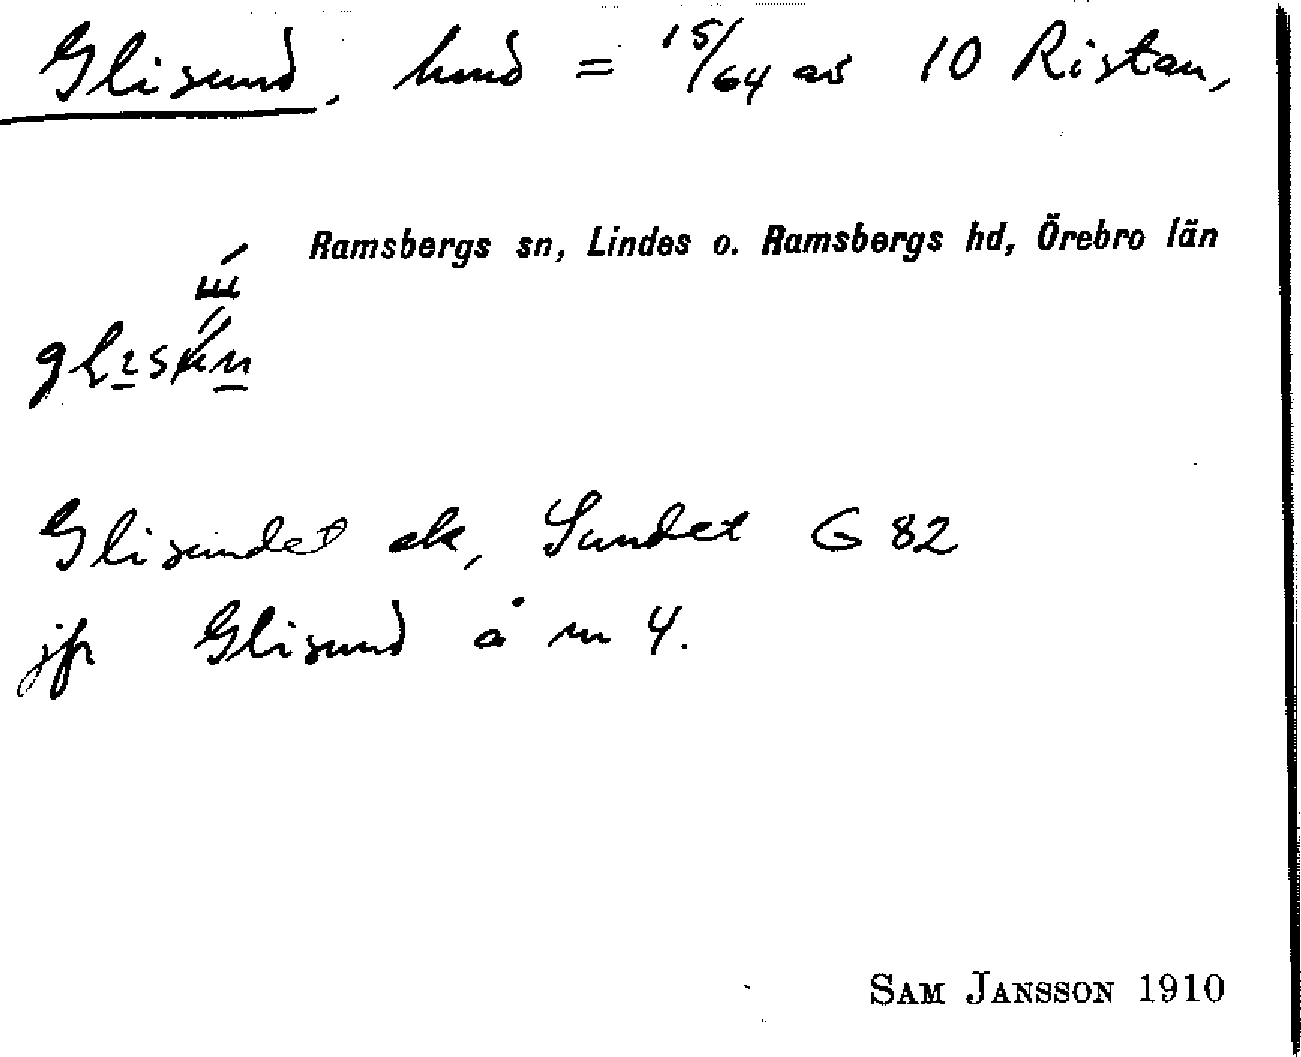 Glisund, hmd = 15/64 av 10 Ristan,
Ramsbergs sn, Lindes o. Ramsbergs hd, Örebro län
Glisundet ek, Sundet G 82
jfr Glisund å nr 4.
SAM JANSSON 1910